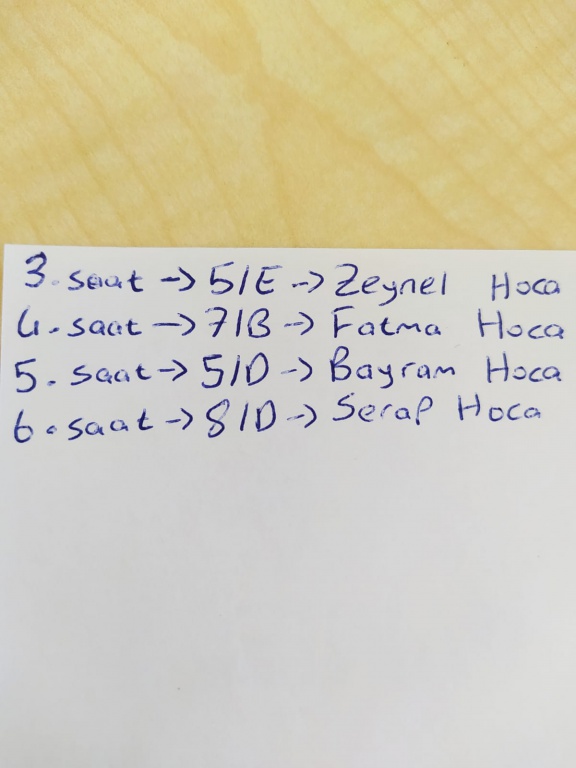 3. saat → 5/E → Zeynel Hoca
4. saat → 7/B → Fatma Hoca
5. saat → 5/D → Bayram Hoca
6. saat → 8/D → Serap Hoca